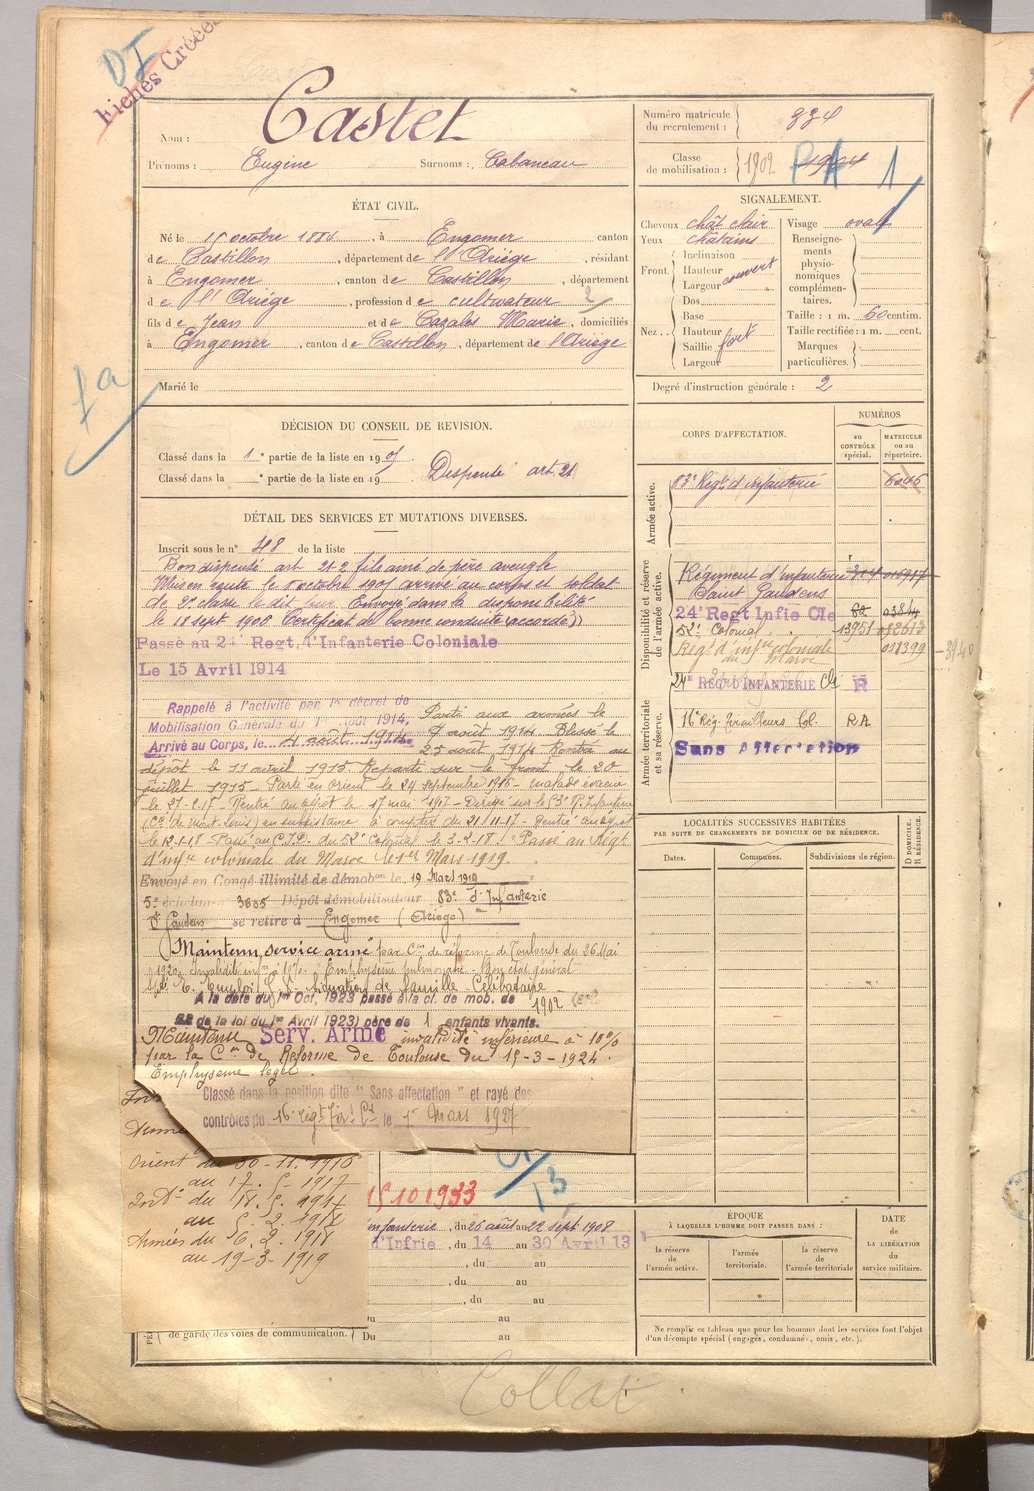 DI
Fiches Créées
Nom : Castet
Prénoms : Eugène Surnoms : Cabaneau
Numéro matricule du recrutement : 834
Classe de mobilisation : 1902 1904
PA 1
ÉTAT CIVIL.
Né le 15 octobre 1884, à Engomer canton
de Castillon, département de l'Ariège, résidant
à Engomer, canton de Castillon, département
de l'Ariège, profession de cultivateur 2
fils de Jean et de Cazalès Marie, domiciliés
à Engomer, canton de Castillon, département de l'Ariège
Marié le
fa
SIGNALEMENT.
Cheveux chât clair
Yeux châtains
Front : Inclinaison Hauteur Largeur couvert
Nez : Dos Base Hauteur Saillie Largeur fort
Visage ovale
Renseignements physionomiques complémentaires.
Taille : 1 m. 60 centim.
Taille rectifiée : 1 m. cent.
Marques particulières.
Degré d'instruction générale : 2
DÉCISION DU CONSEIL DE REVISION.
Classé dans la 1e partie de la liste en 1905.
Classé dans la e partie de la liste en 19
Dispensé art. 21
DÉTAIL DES SERVICES ET MUTATIONS DIVERSES.
Inscrit sous le n° 48 de la liste
Bon dispensé art 21 2 fils aîné de père aveugle
Mis en route le 8 octobre 1905 arrivé au corps et soldat
de 2e classe le dit jour. Envoyé dans la disponibilité
le 18 sept 1906. Certificat de bonne conduite accordé
Passé au 24e Regt. d'Infanterie Coloniale
Le 15 Avril 1914
Rappelé à l'activité par le décret de
Mobilisation Générale du 1er Août 1914,
Arrivé au Corps, le 4 août 1914
Parti aux armées le
7 août 1914 Blessé le
25 août 1914 Rentré au
dépôt le 11 avril 1915 Reparti sur le front le 20
juillet 1915 - Parti en Orient le 24 septembre 1916 - malade évacué
le 27-2-17 Rentré au dépôt le 17 mai 1917 - Dirigé sur le 53e R. Infanterie
(Cie du mont Louis) en subsistance à compter du 21-11-17 - Rentré au dépôt
le 12-1-18 Passé au C.I.D. du 52e Colonial le 3-2-18. Passé au Régt
d'infie coloniale du Maroc le 1er Mars 1919.
Envoyé en Congé illimité de démobon le 19 Mars 1919
5e échelon n° 3685 Dépôt démobilisateur 83e d'Infanterie
St Gaudens se retire à Engomer (Ariège)
Maintenu service armé par Con de réforme de Toulouse du 26 Mai
1920. Invalidité infre à 10%. Emphysème pulmonaire - Bon état général
situation de famille Célibataire
A la date du 1er Oct. 1923 passé à la cl. de mob. de 1902
de la loi du 1er Avril 1923) père de 1 enfants vivants.
Maintenu Serv. Armé invalidité inférieure à 10%
par la Con de Réforme de Toulouse du 15-3-1924.
Emphysème léger.
Classé dans la position dite "Sans affectation" et rayé des
contrôles du 16e régt Tirrs Cx le 1er Mars 1927
Orient du 30-11-1916
au 17-5-1917
Intr du 18-5-1917
au 5-2-1918
Armées du 6-2-1918
au 19-3-1919
15 10 1933
13
infanterie, du 26 août au 22 sept 1908
d'Infrie, du 14 au 30 Avril 13
, du au
, du au
, du au
Du au
de garde des voies de communication. Du au
CORPS D'AFFECTATION.
NUMÉROS
au CONTRÔLE spécial.
MATRICULE ou au répertoire.
Armée active.
83e Régt d'infanterie 6046
Disponibilité et réserve de l'armée active.
Régiment d'infanterie
Saint Gaudens
24e Regt Infie Cle 62 03844
52e Colonial 13951
Régt d'infie coloniale
du Maroc 021399
Armée territoriale et sa réserve.
24e REGt D'INFANTERIE Cle R
16e Rég. Tirailleurs Col. RA
Sans Affectation
LOCALITÉS SUCCESSIVES HABITÉES
PAR SUITE DE CHANGEMENTS DE DOMICILE OU DE RÉSIDENCE.
Dates.
Communes.
Subdivisions de région.
D DOMICILE. R RÉSIDENCE.
ÉPOQUE
À LAQUELLE L'HOMME DOIT PASSER DANS :
la réserve de l'armée active.
l'armée territoriale.
la réserve de l'armée territoriale
DATE de LA LIBÉRATION du service militaire.
Ne remplir ce tableau que pour les hommes dont les services font l'objet
d'un décompte spécial (engagés, condamnés, omis, etc.).
Collat